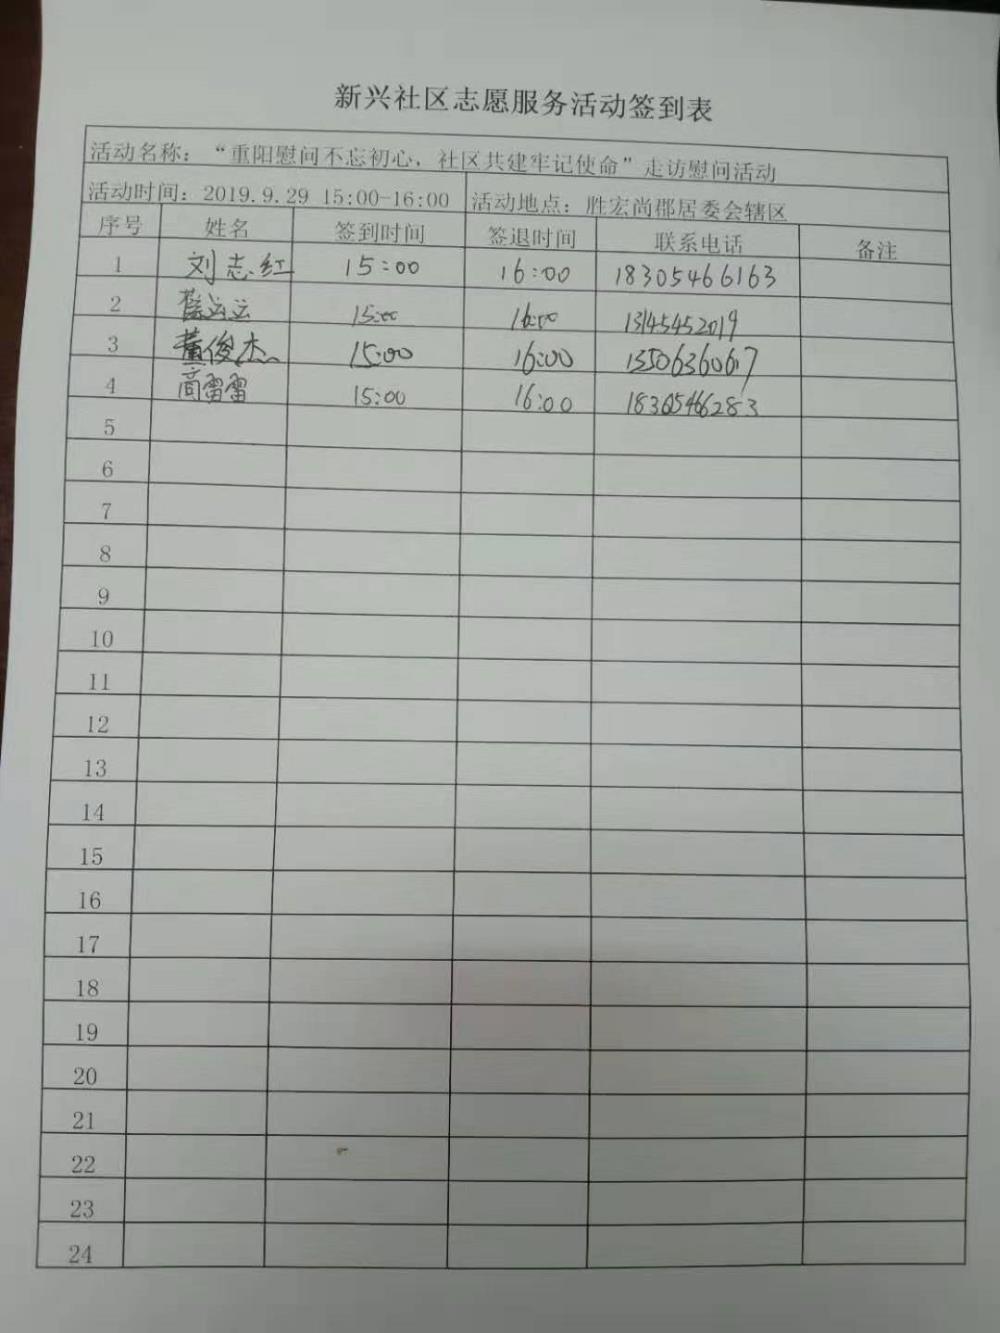 新兴社区志愿服务活动签到表
活动名称：“重阳慰问不忘初心，社区共建牢记使命”走访慰问活动
活动时间：2019.9.29 15:00-16:00 活动地点：胜宏尚郡居委会辖区
序号 姓名 签到时间 签退时间 联系电话 备注
1 刘志红 15:00 16:00 18305466163
2 15:00 16:00 13145452019
3 董俊杰 15:00 16:00 13506636067
4 高雷雷 15:00 16:00 18305466283
5
6
7
8
9
10
11
12
13
14
15
16
17
18
19
20
21
22
23
24